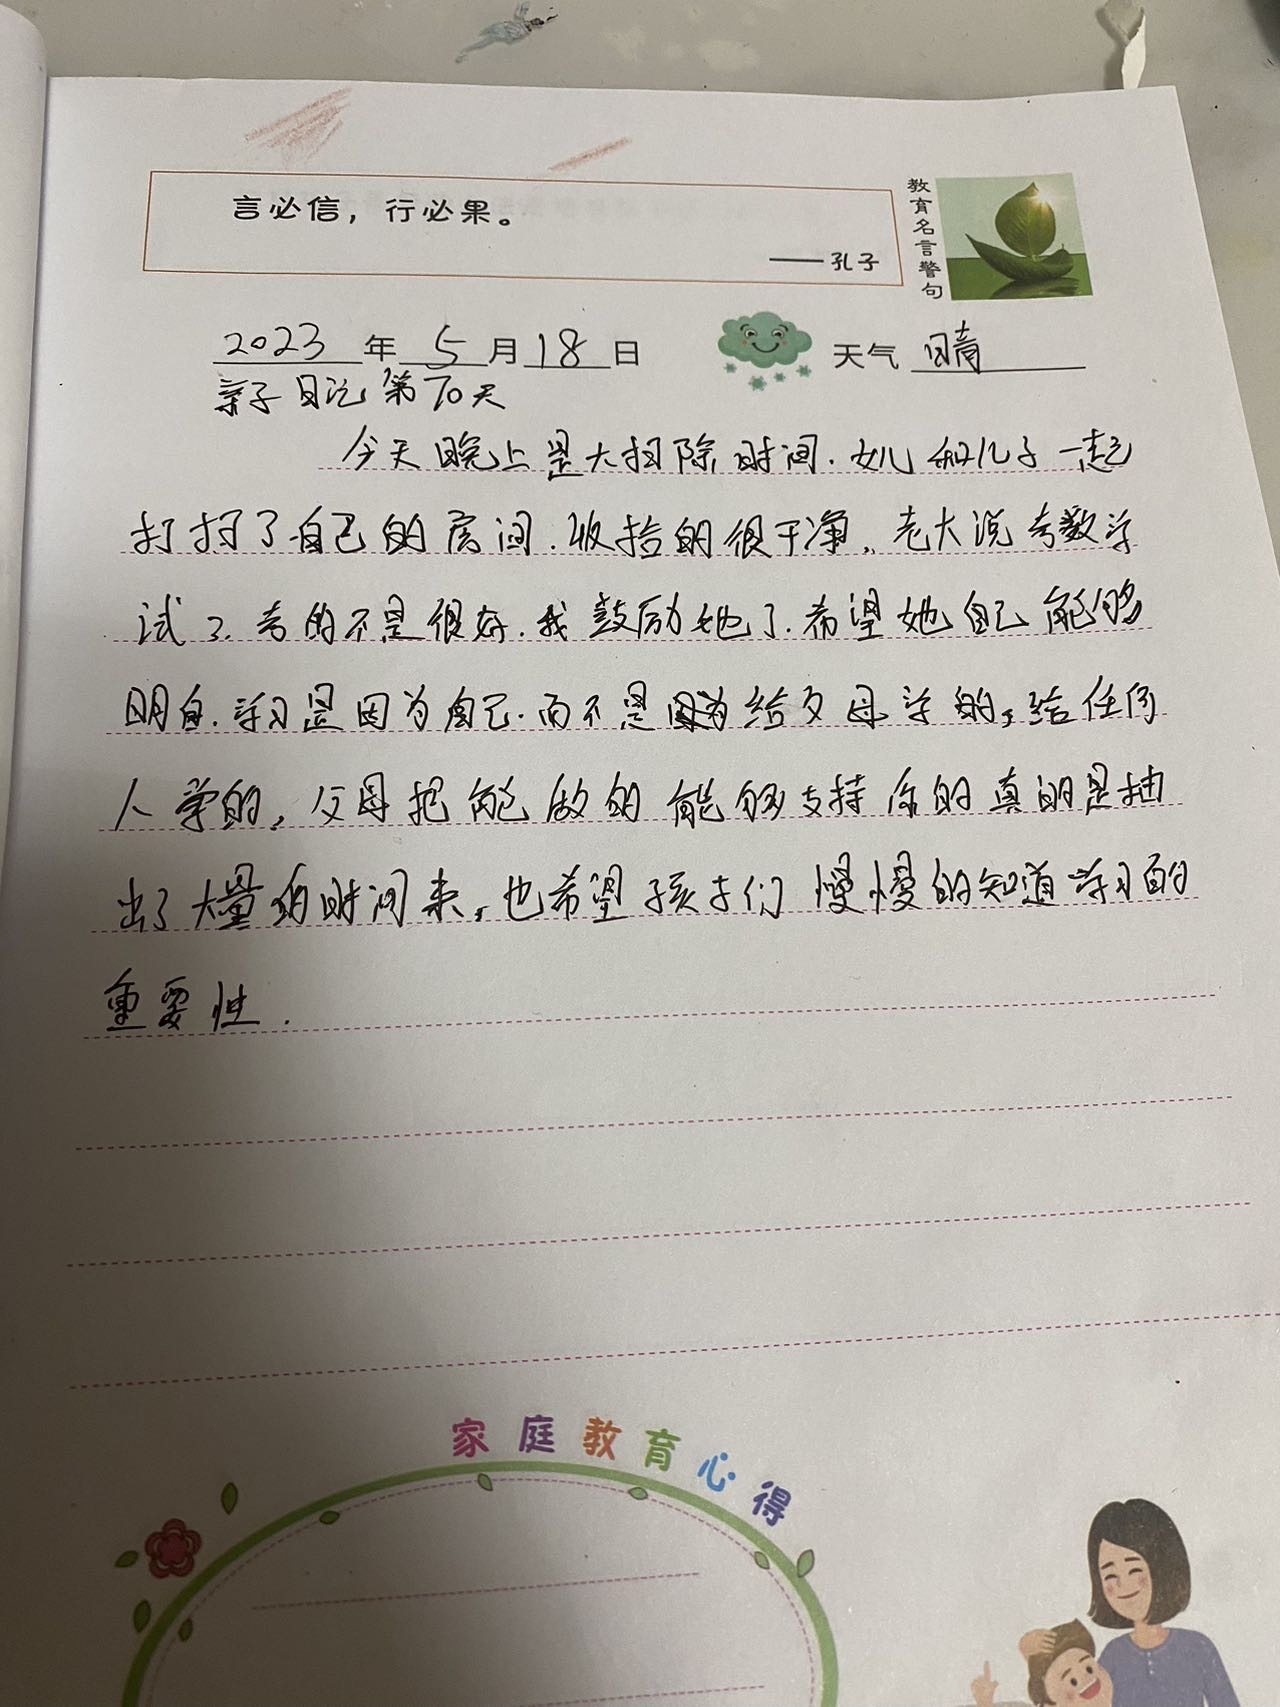 言必信，行必果。
——孔子
教育名言警句
2023年5月18日 天气 晴
亲子日记第70天
今天晚上是大扫除时间.女儿和儿子一起
打扫了自己的房间.收拾的很干净。老大说考数学
试了.考的不是很好.我鼓励她了.希望她自己能够
明白.学习是因为自己.而不是因为给父母学的,给任何
人学的,父母把能做的能够支持你的真的是抽
出了大量的时间来,也希望孩子们慢慢的知道学习的
重要性.
家庭教育心得